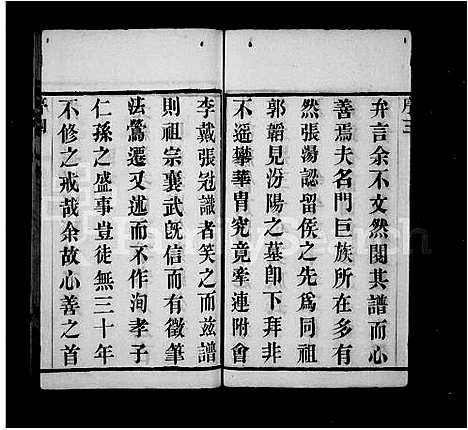 弁言余不文然閱其譜而心
善焉夫名門巨族所在多有
然張湯認留侯之先為同祖
郭韜見汾陽之墓卽下拜非
不遥攀華胄究竟牽連附會
李戴張冠識者笑之而茲譜
則祖宗襄武旣信而有徵筆
法鶯遷又述而不作洵孝子
仁孫之盛事豈徒無三十年
不修之戒哉余故心善之首